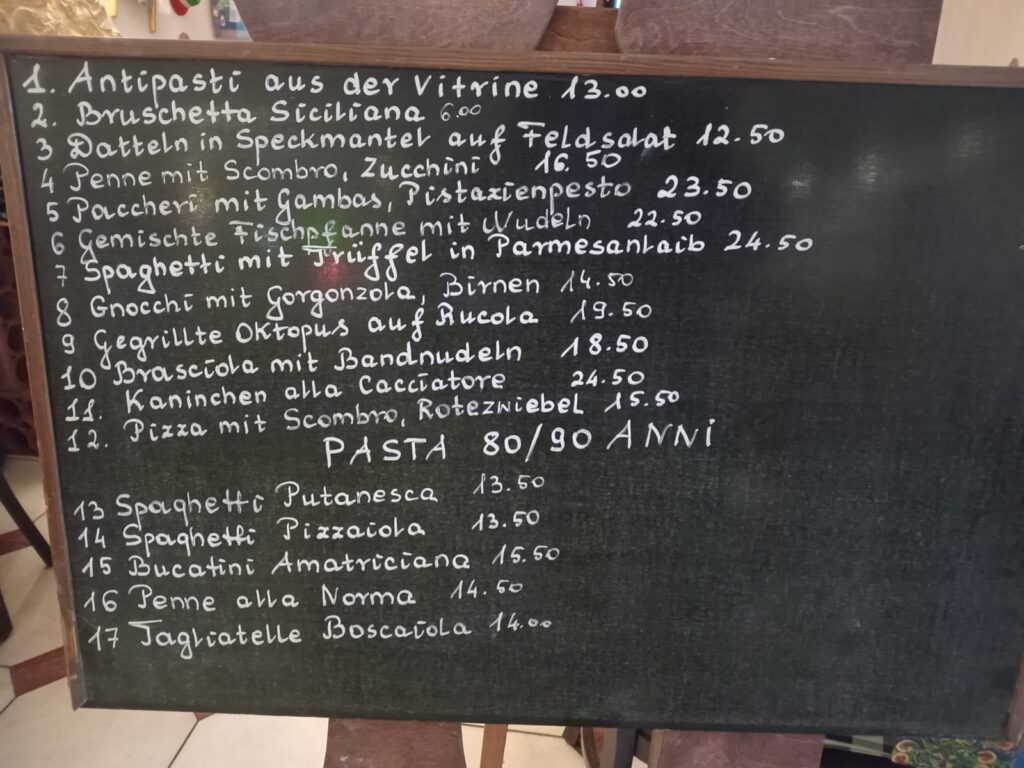 1. Antipasti aus der Vitrine 13.00
2. Bruschetta Siciliana 6.00
3 Datteln in Speckmantel auf Feldsalat 12.50
4 Penne mit Scombro, Zucchini 16.50
5 Paccheri mit Gambas, Pistazienpesto 23.50
6 Gemischte Fischpfanne mit Nudeln 22.50
7 Spaghetti mit Trüffel in Parmesanlaib 24.50
8 Gnocchi mit Gorgonzola, Birnen 14.50
9 Gegrillte Oktopus auf Rucola 19.50
10 Brasciola mit Bandnudeln 18.50
11. Kaninchen alla Cacciatore 24.50
12. Pizza mit Scombro, Rotezwiebel 15.50
PASTA 80/90 ANNi
13 Spaghetti Putanesca 13.50
14 Spaghetti Pizzaiola 13.50
15 Bucatini Amatriciana 15.50
16 Penne alla Norma 14.50
17 Tagliatelle Boscaiola 14.00